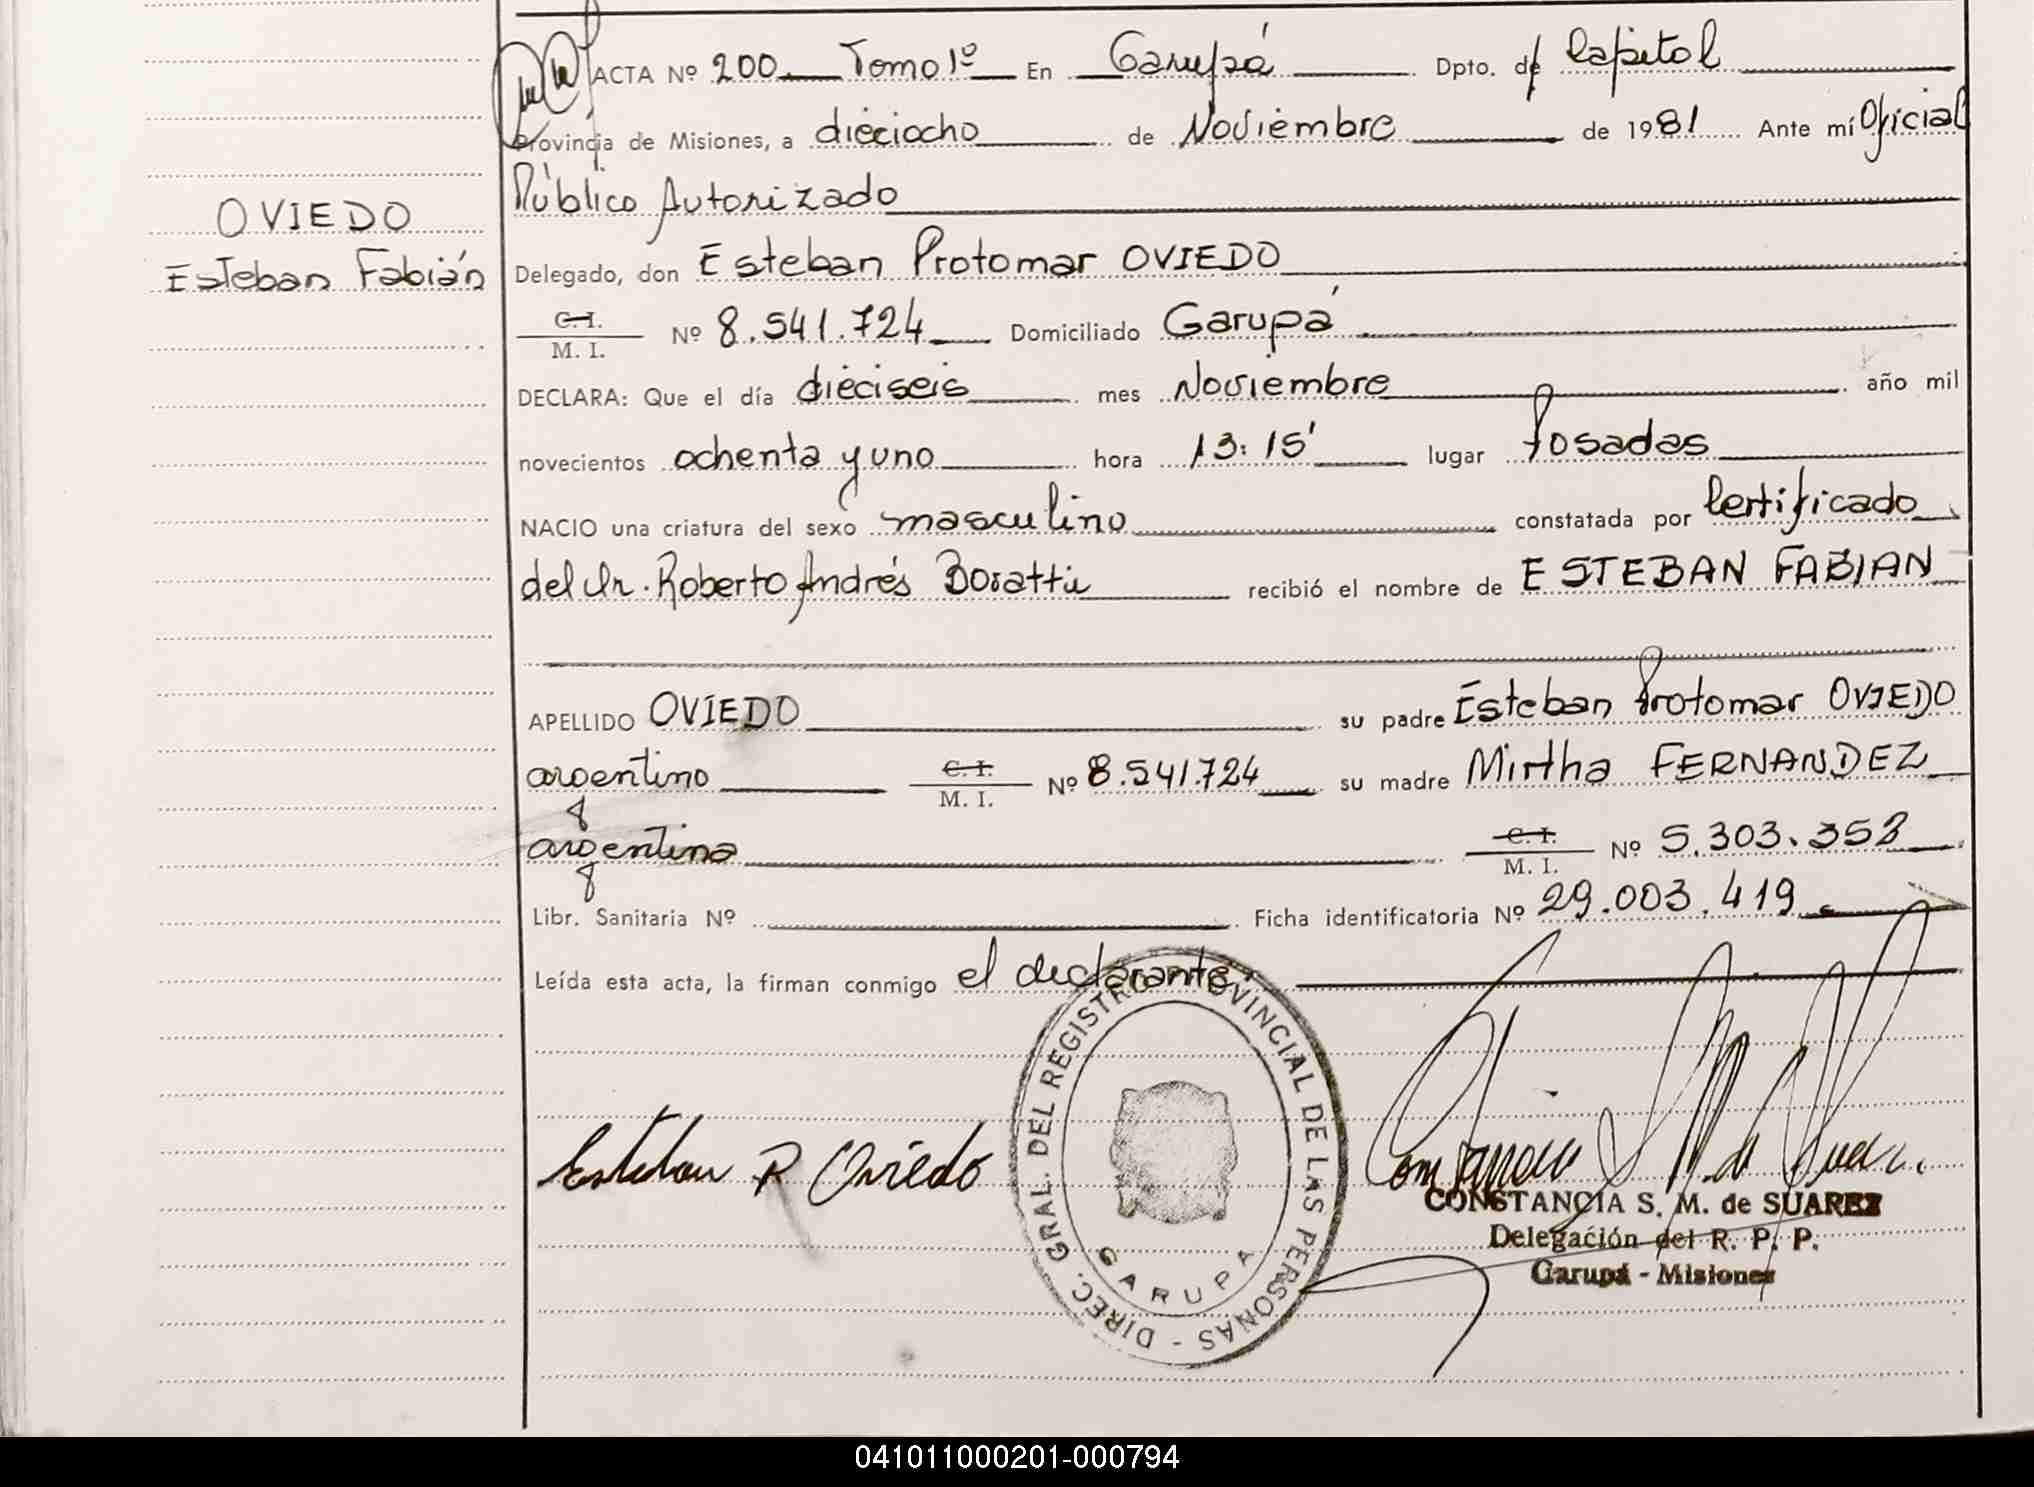 ACTA Nº 200 Tomo 1º En Garupá Dpto. de Capital
Provincia de Misiones, a dieciocho de Noviembre de 1981 Ante mí Oficial
Público Autorizado
OVIEDO
Esteban Fabián
Delegado, don Esteban Protomar OVIEDO
C.I.
M. I. Nº 8.541.724 Domiciliado Garupá
DECLARA: Que el día dieciseis mes Noviembre año mil
novecientos ochenta y uno hora 13:15' lugar Posadas
NACIO una criatura del sexo masculino constatada por Certificado
del Dr. Roberto Andrés recibió el nombre de ESTEBAN FABIAN
APELLIDO OVIEDO su padre Esteban Protomar OVIEDO
argentino C.I. M. I. Nº 8.541.724 su madre Mirtha FERNANDEZ
argentina C.I. M. I. Nº 5.303.352
Libr. Sanitaria Nº Ficha identificatoria Nº 29.003.419
Leída esta acta, la firman conmigo el declarante
DIREC. GRAL. DEL REGISTRO PROVINCIAL DE LAS PERSONAS -
GARUPA
Esteban P Oviedo
CONSTANCIA S. M. de SUAREZ
Delegación del R. P. P.
Garupá - Misiones
041011000201-000794